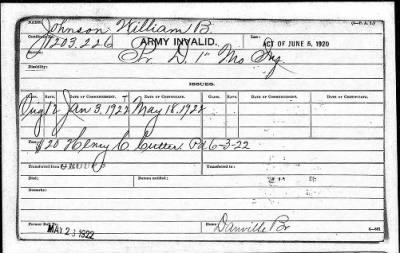 Name: Johnson William B.
Certificate No. 1203,226 ARMY INVALID. Law: ACT OF JUNE 5, 1920
Service: Pv. D. 1" Mo Inf
Disability:
ISSUES.
CLASS. RATE. DATE OF COMMENCEMENT. DATE OF CERTIFICATE. CLASS. RATE. DATE OF COMMENCEMENT. DATE OF CERTIFICATE.
Orig 12 Jan 3, 1922 May 18, 1922
$20 Henry C Cutter Pd 6-3-22
Transferred from GROUP
Died: Bureau notified:
Remarks:
Former Roll No. Home: Danville Br
MAY 23 1922